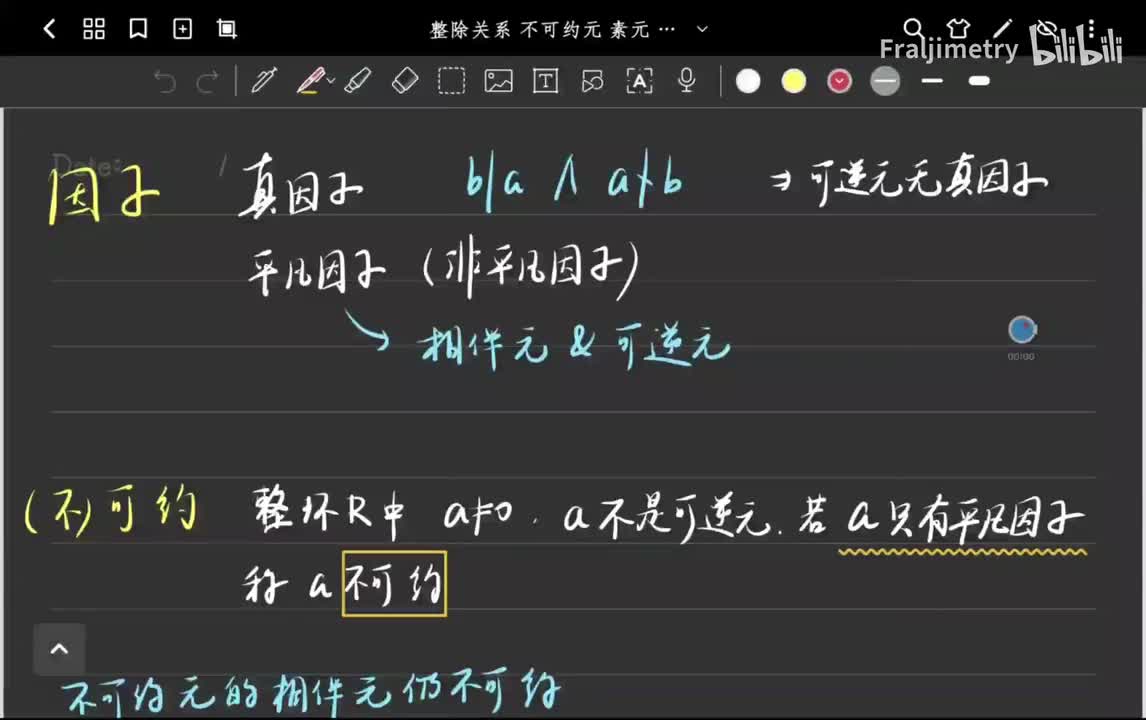 整除关系 不可约元 素元 ...
Fraljimetry bilibili
Date: /
因子 真因子 b|a ∧ a∤b ⇒ 可逆元无真因子
平凡因子 (非平凡因子)
相伴元 & 可逆元
00:00
(不)可约 整环R中 a≠0. a不是可逆元. 若 a只有平凡因子
称 a 不可约
不可约元的相伴元仍不可约